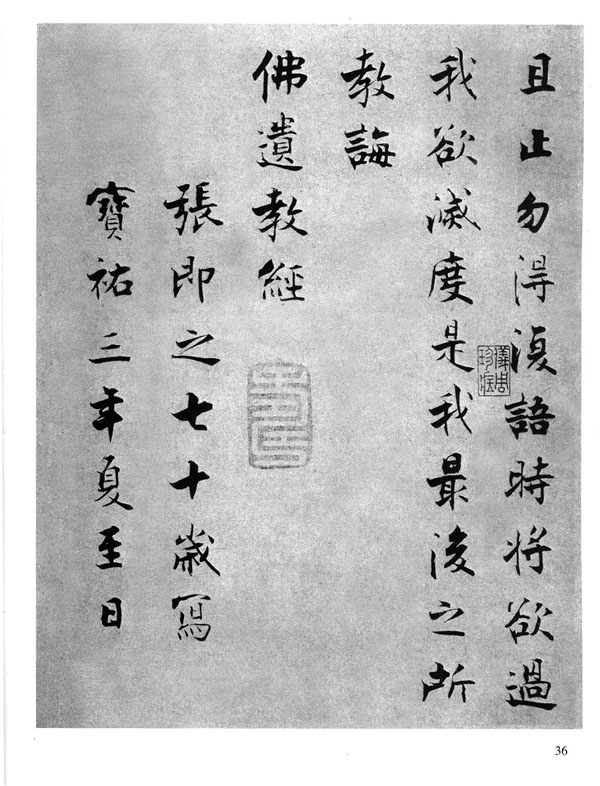 且止勿得復語時將欲過
我欲滅度是我最後之所
教誨
佛遺教經
張即之七十歲寫
寶祐三年夏至日
36